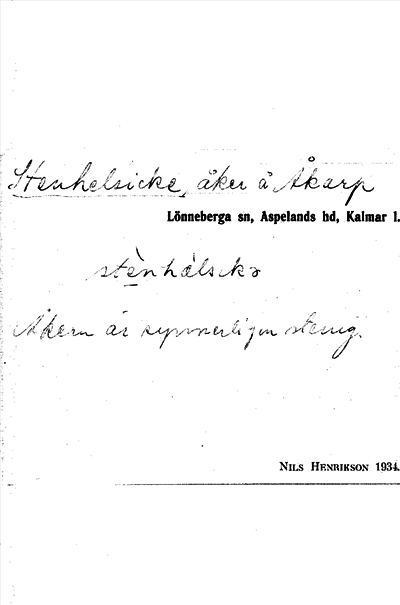 Stenhelsicke, åker å Åkarp
Lönneberga sn, Aspelands hd, Kalmar l.
stènhàlsikə
Åkern är synnerligen stenig.
NILS HENRIKSON 1934.